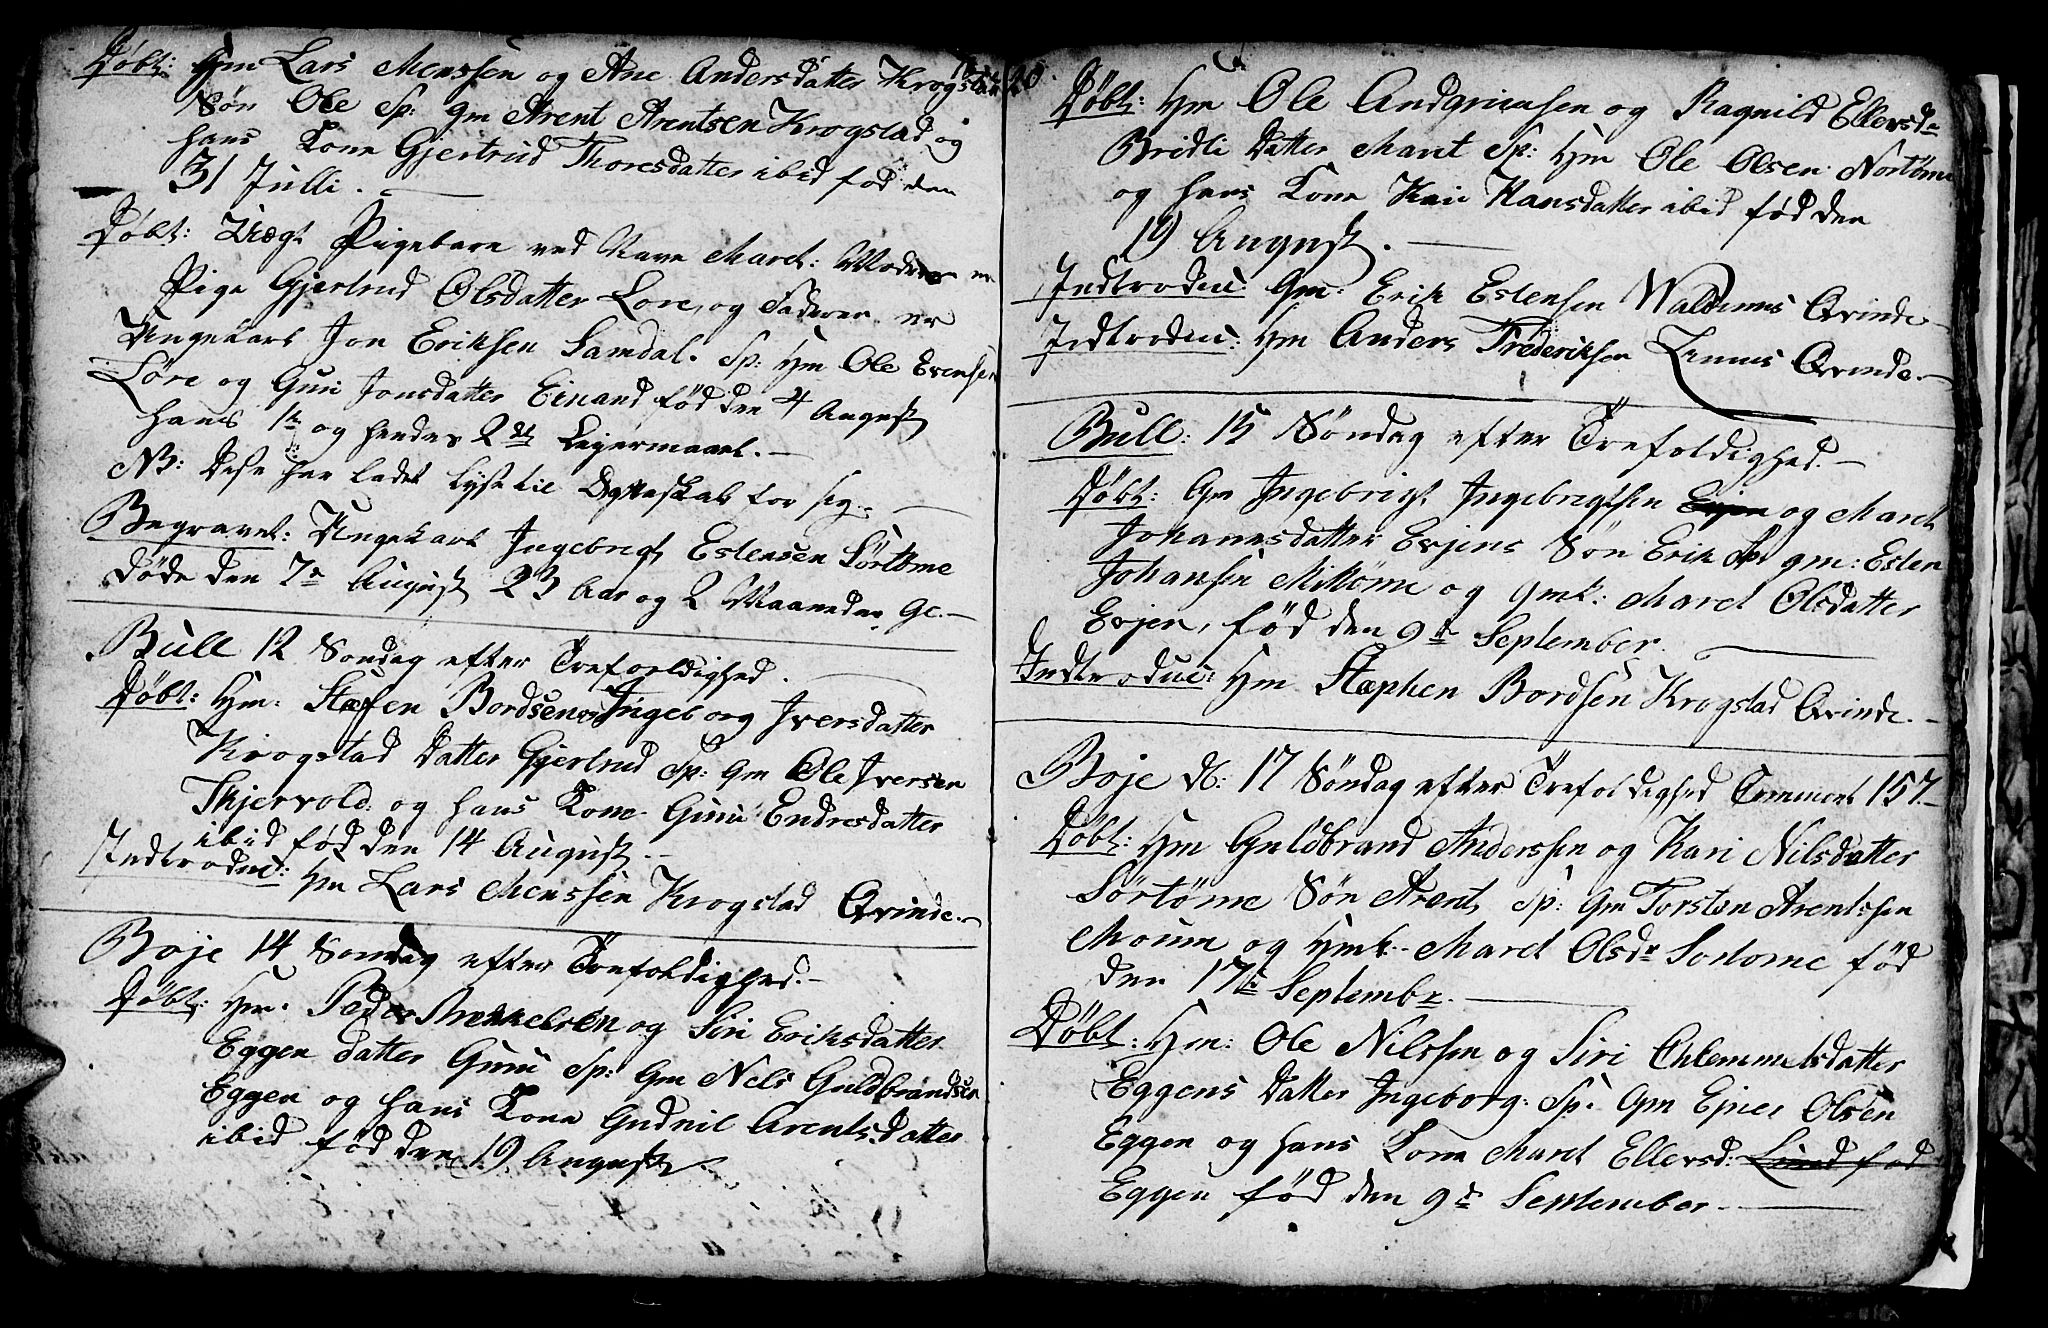 Døbt: Hm Lars Monssen og Ane Andersdatter Krogstad
Søn Ole Sp: Gm Arent Arentsen Krogstad og
hans Kone Gjertrud Thoresdatter ibid fød den
31 Julli.
Døbt: Uægt Pigebarn ved Navn Maret: Moderen er
Pige Gjertrud Olsdatter Lore, og Faderen er
Ungekarl Jon Eriksen Samdal. Sp: Hm Ole Evensen
Løre og Guri Jonsdatter Einand fød den 4 August
hans 1te og hendes 2det Leyermaael.
NB: Dese har ladet lyse til Egteskab for sig.
Begravet: Ungekarl Ingebrigt Estensen Sørtøme
døde den 7de August 23 Aar og 2 Maaneder Gl.
Bull 12 Søndag efter Trefoeldighed.
Døbt: Hm: Stæfen Bordsen og Ingeborg Iversdatter
Krogstad Datter Gjertrud Sp: Gm Ole Iversen
Thjervold: og hans Kone Guru Endresdatter
ibid fød den 14 August.
Indtroduc: Hm Lars Monssen Krogstad Qvinde.
Boje 14 Søndag efter Trefoldighed.
Døbt: Hm: Peder Mekkelsen og Siri Eriksdatter
Eggen datter Guru Sp: Gm Nels Guldbrandsen
Eggen og hans Kone Gudnil Arentsdatter
ibid fød den 19 August
20.
Døbt: Hm Ole Andgrimsen og Ragnild Ellersdr
Bridli Datter Marit Sp: Hm Ole Olsen Nortøme
og hans Kone Kari Hansdatter ibid fød den
19 August.
Indtroduc: Gm: Erik Estensen Waldemes Qvinde.
Indtroduc: Hm Anders Frederiksen Lemus Qvinde.
Bull: 15 Søndag efter Trefoldighed.
Døbt: Gm Ingebrigt Ingebregtsen Evjen og Maret
Johanesdatter Evjens Søn Erik Sp: gm: Esten
Johansen Mitlöme og Gmk: Maret Olsdatter
Evjen, fød den 9de September.
Indtroduc: Hm Stæphen Bordsen Krogstad Qvinde.
Boje d: 17 Søndag efter Trefoldighed 157
Døbt: Hm Guldbrand Anderssen og Kari Nilsdatter
Sörtöme Søn Arent, Sp: Gm Torsten Arentssen
Moum og Hmk: Maret Olsdr Sortome fød
den 17de Septembr.
Døbt: Hm: Ole Nilssen og Siri Chlemmetsdatter
Eggens Datter Ingeborg: Sp: Gm Ejner Olsen
Eggen og hans Kone Maret Ellersd: Lund fød
Eggen fød den 9de September.